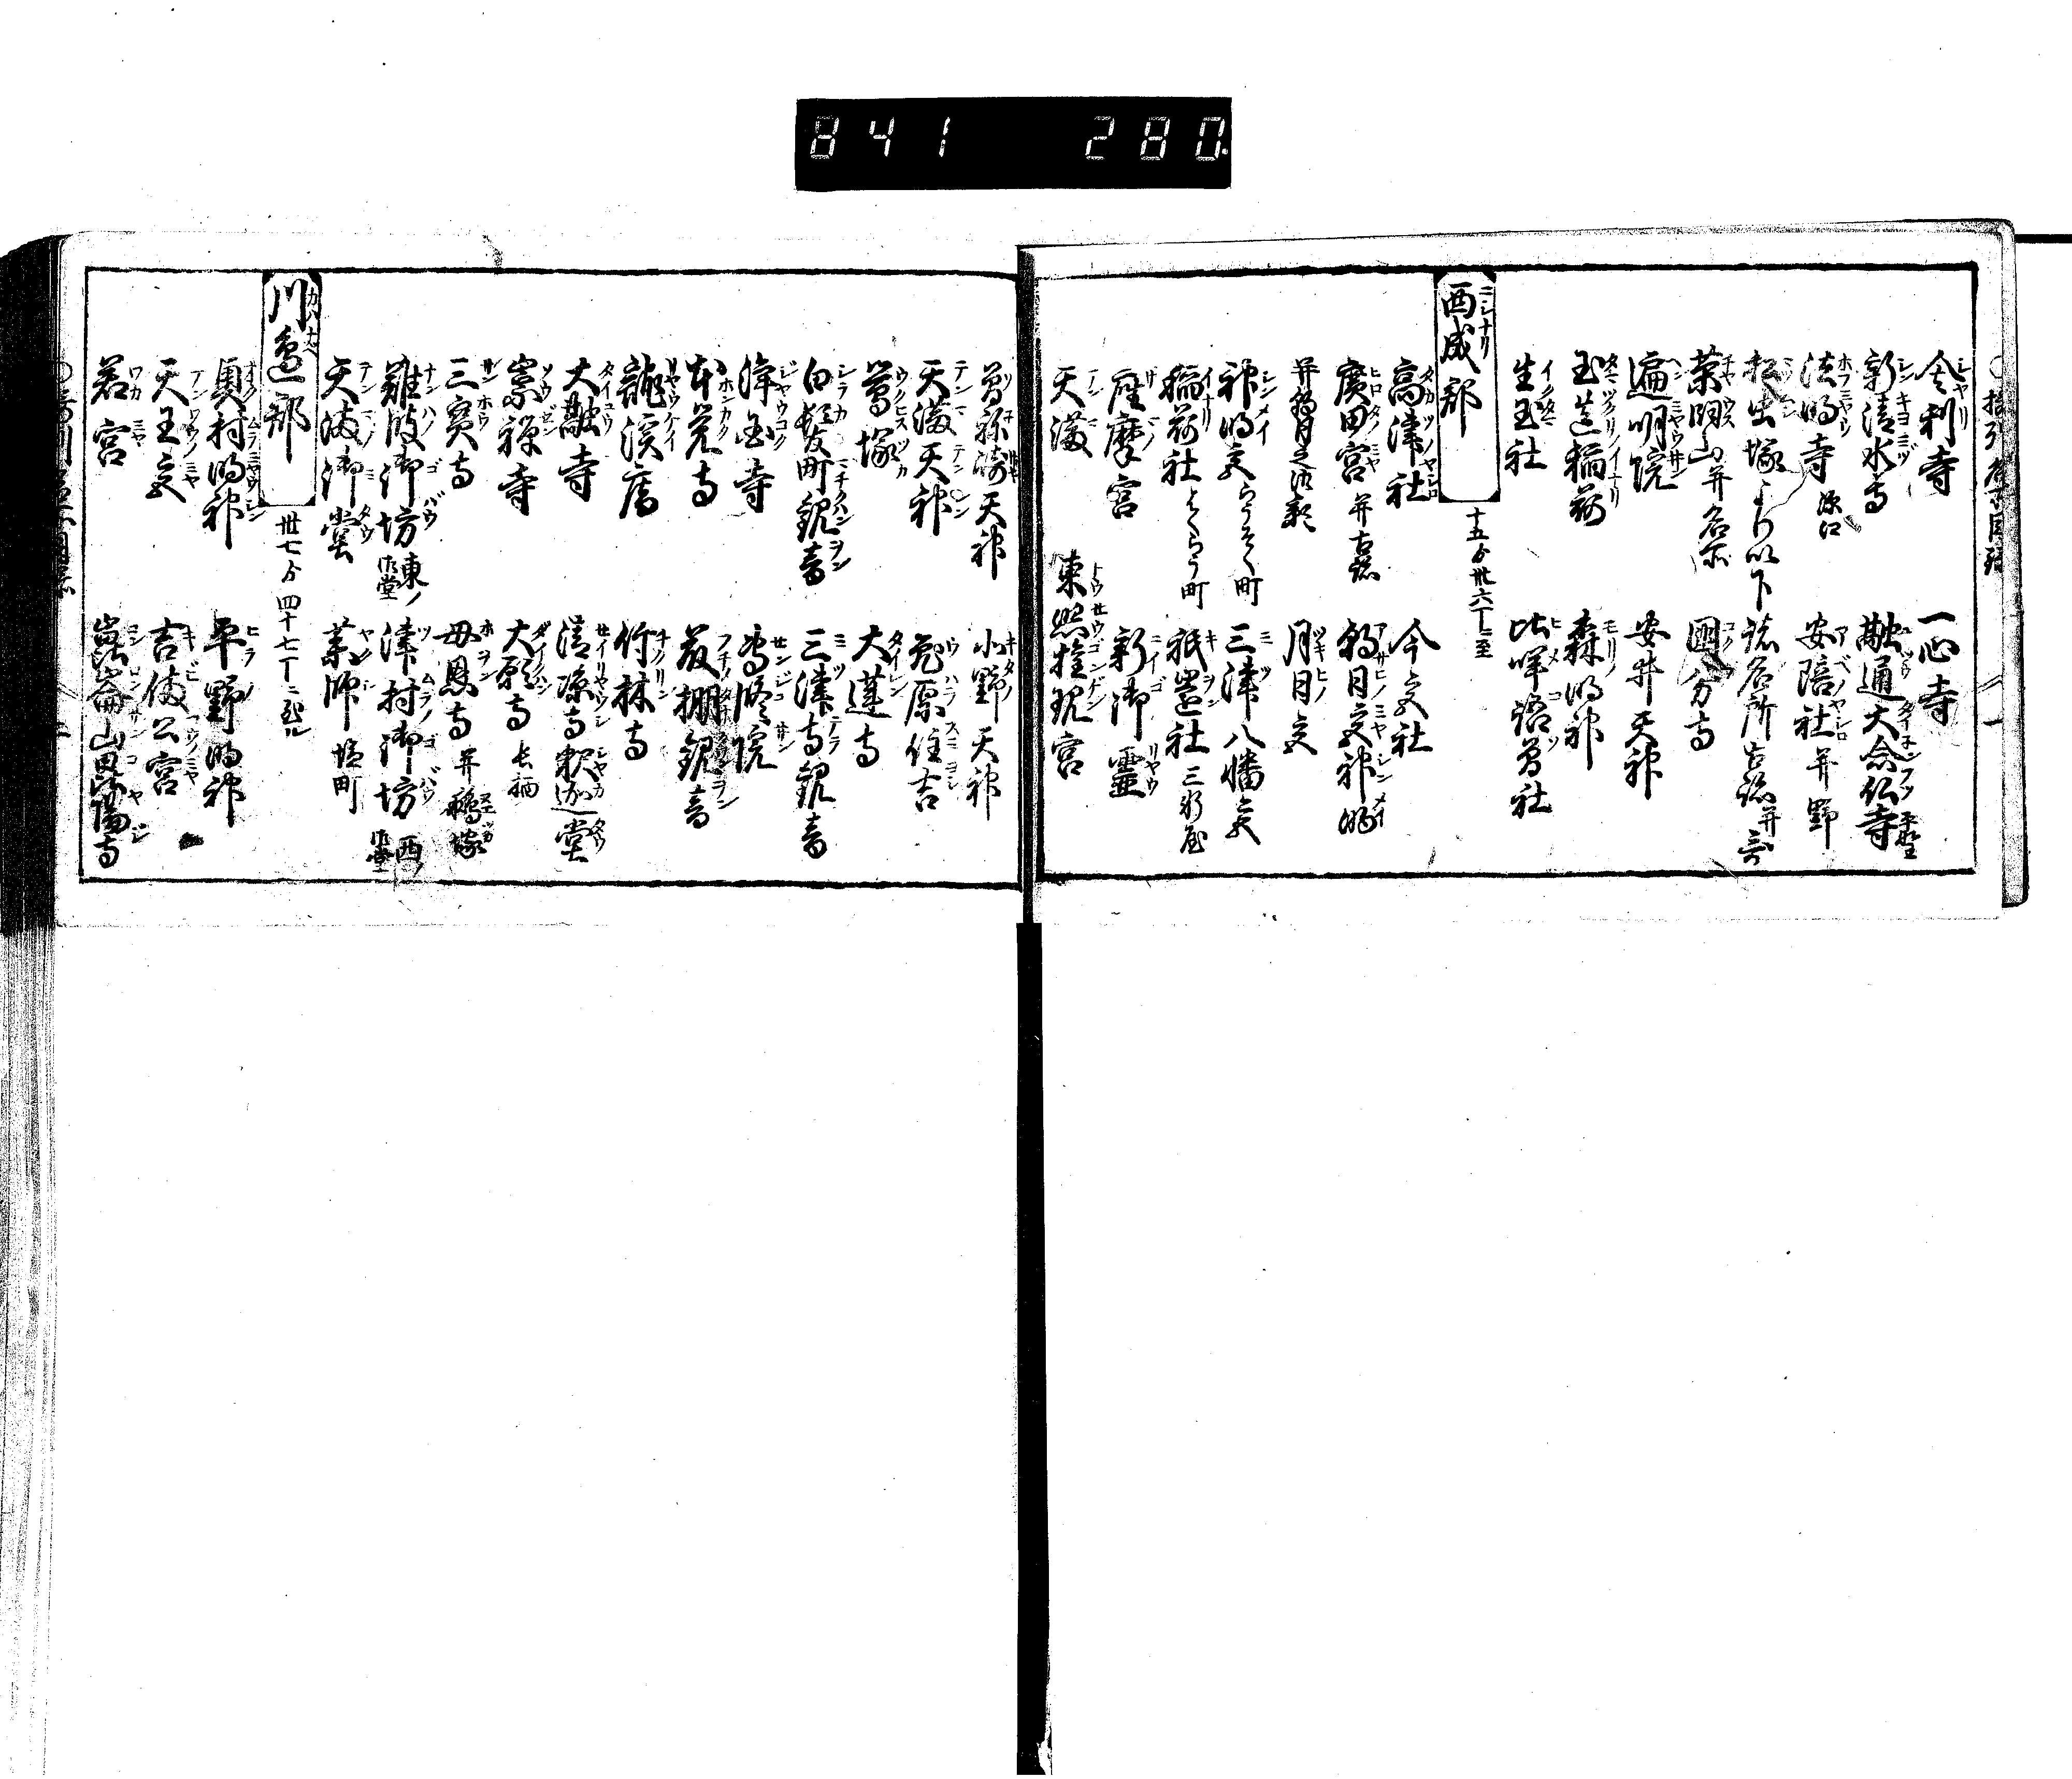 841 280
舎利寺 一心寺
新清水寺 融通大念仏寺 平野
法明寺 深江 安陪社 并野
松虫塚 これより以下 諸名所 古跡并哥
茶臼山 并名所 国分寺
遍明院 安井天神
玉造稲荷 森明神
生玉社 比咩語曽社
西成郡 十五ゟ廿六丁ニ至
高津社 今宮社
廣田宮 并古跡 朝日宮神明
月日宮
神明宮 らうそく町 三津八幡宮
稲荷社 ばくらう町 祇園社 三軒屋
座摩宮 新御霊
天満 東照権現宮
曽祢崎天神 北野天神
天満天神 兎原住吉
鶯塚 大蓮寺
白髪町観音 三津寺観音
浄国寺 専修院
本覚寺 藤棚観音
龍渓庵 竹林寺
大融寺 清凉寺 釈迦堂
崇禅寺 大願寺 長柄
三宝寺 母恩寺 并鵺塚
難波御坊 東ノ御堂 津村御坊 西ノ御堂
天満御堂 薬師 塩町
川邉郡 廿七ゟ四十七丁ニ至ル
奥村明神 平野明神
天王宮 吉備公宮
若宮 崑崙山昆陽寺